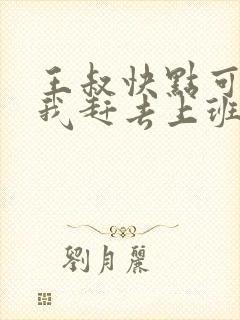 王叔快點可
我赶去上班
劉月麗